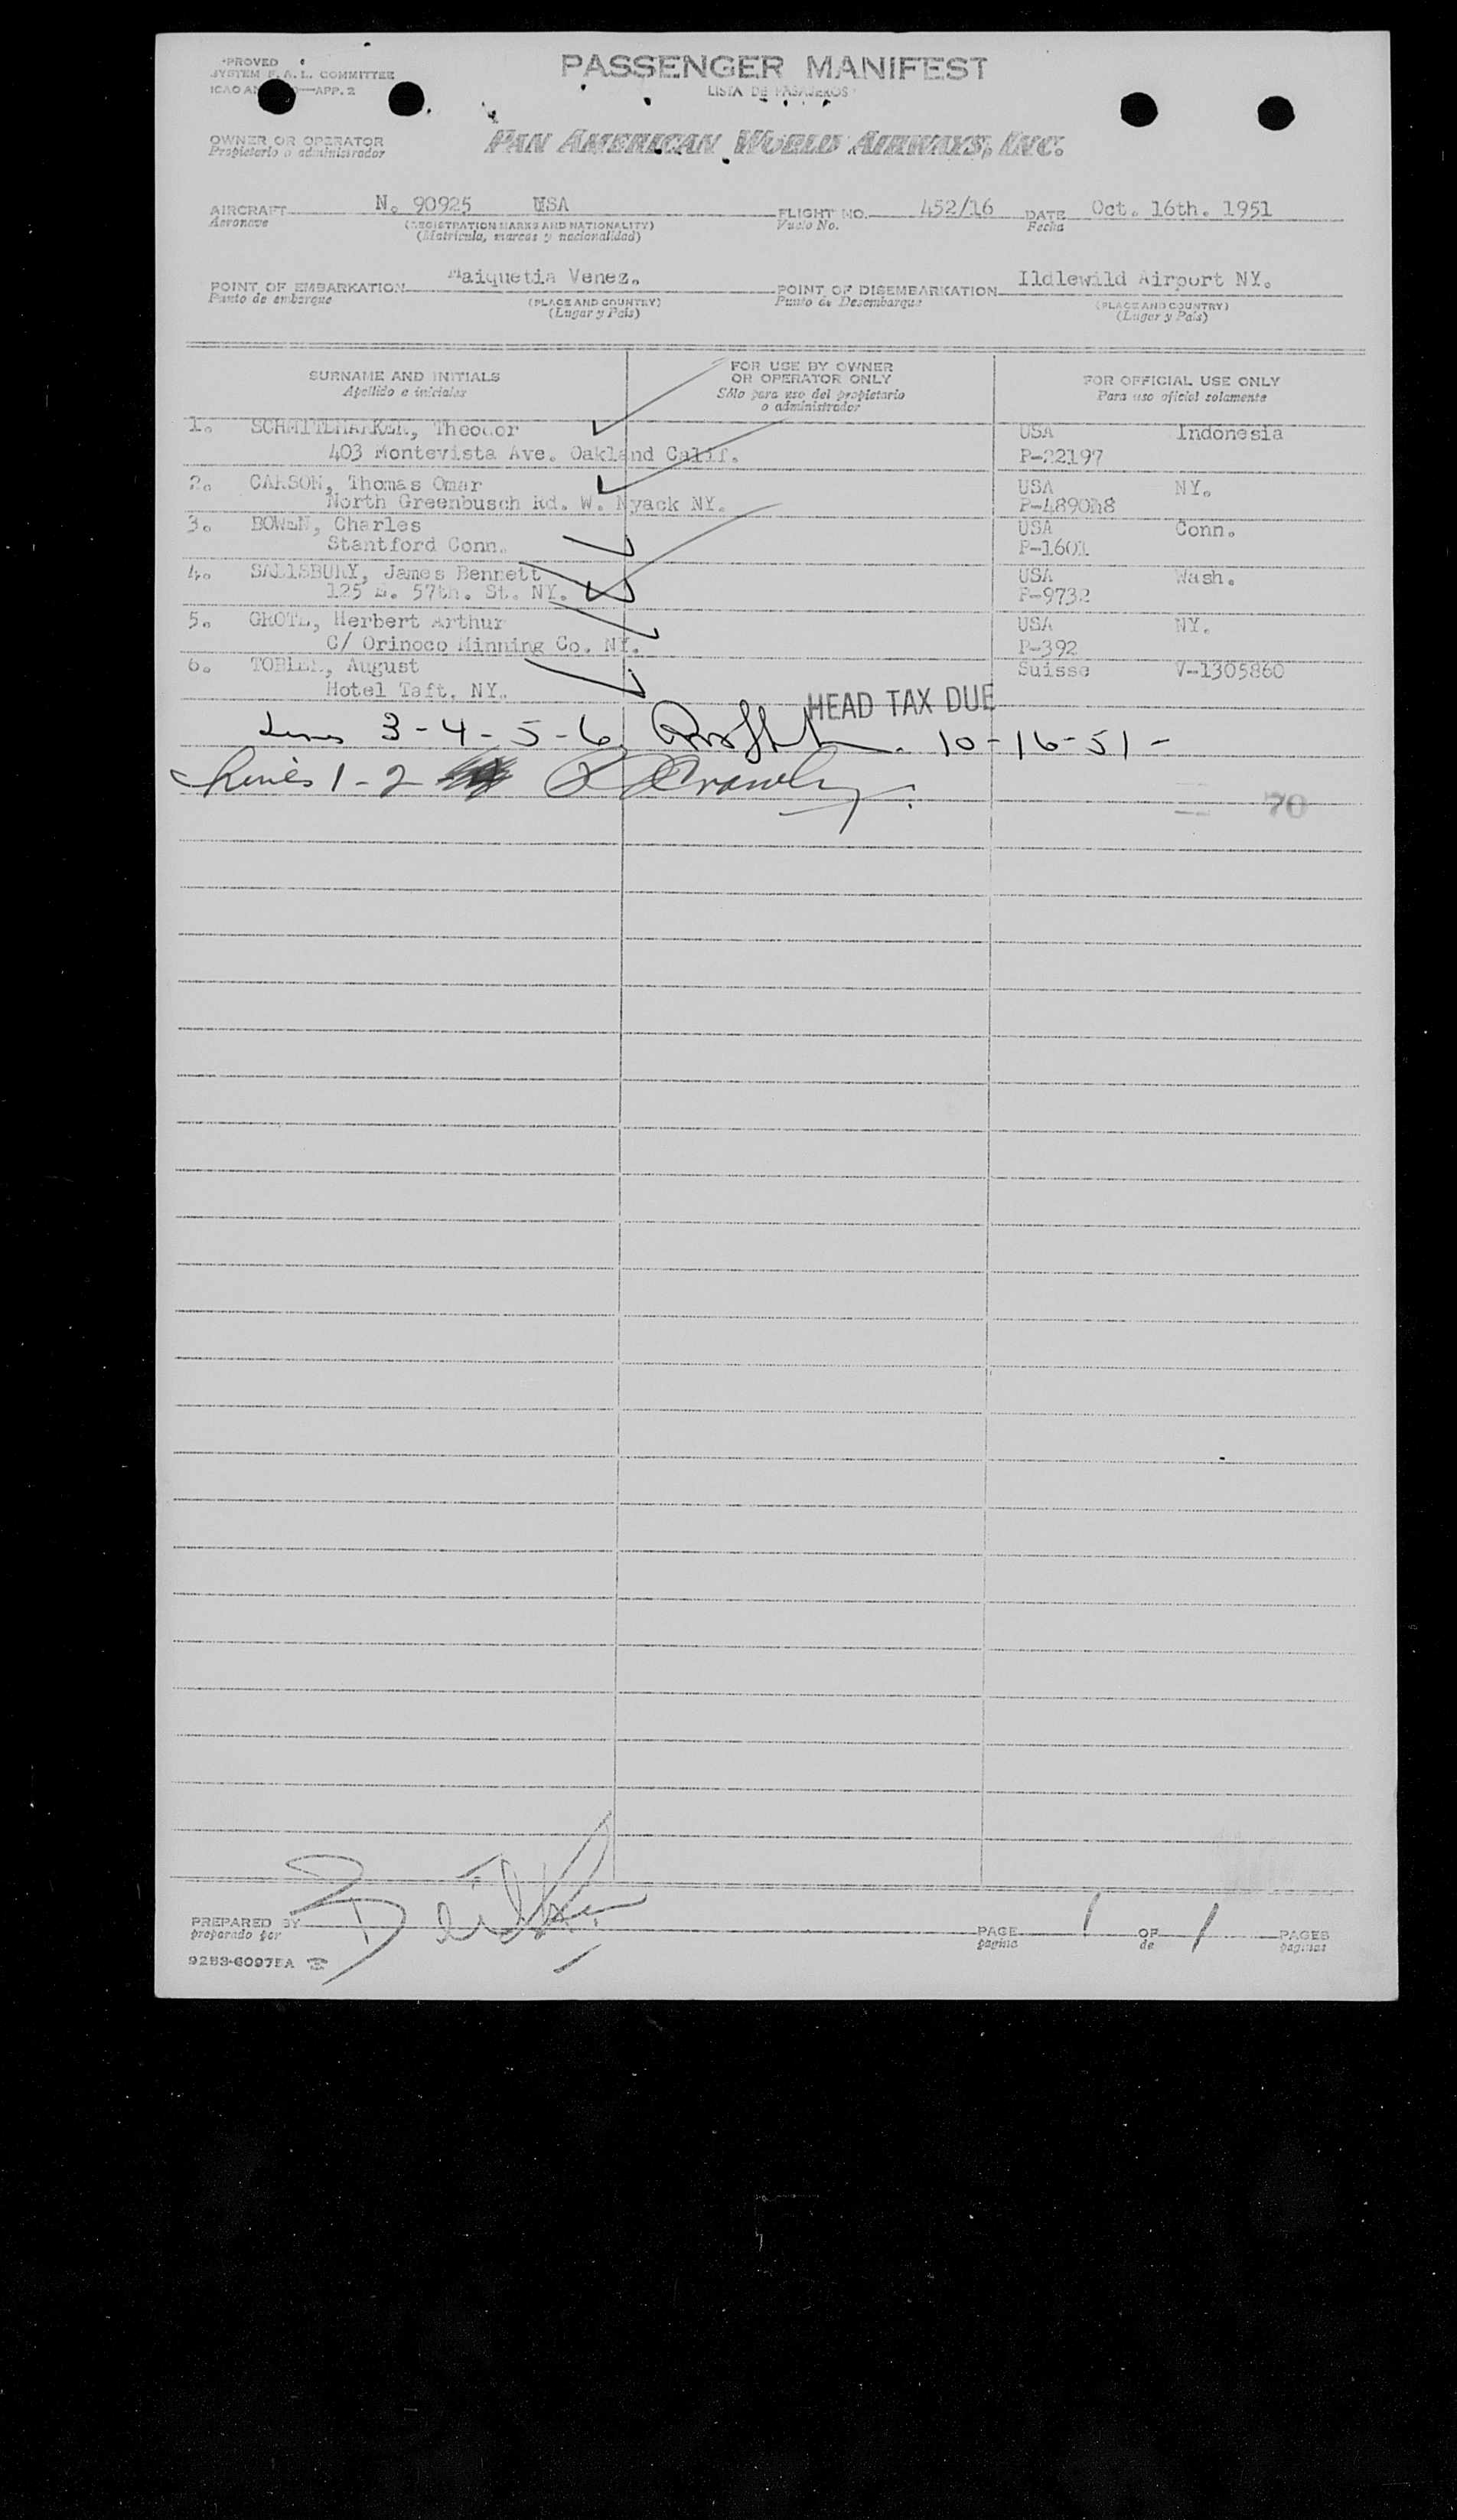 PROVED
SYSTEM F. A. L. COMMITTEE
ICAO AN —APP. 2
PASSENGER MANIFEST
LISTA DE PASAJEROS
OWNER OR OPERATOR
Propietario o administrador
PAN AMERICAN WORLD AIRWAYS, INC.
AIRCRAFT N. 90925 USA FLIGHT NO. 452/16 DATE Oct. 16th. 1951
Aeronave (REGISTRATION MARKS AND NATIONALITY) Vuelo No. Fecha
(Matrícula, marcas y nacionalidad)
POINT OF EMBARKATION Maiquetia Venez. POINT OF DISEMBARKATION Ildlewild Airport NY.
Punto de embarque (PLACE AND COUNTRY) Punto de Desembarque (PLACE AND COUNTRY)
(Lugar y País) (Lugar y País)
SURNAME AND INITIALS
Apellido e iniciales
FOR USE BY OWNER
OR OPERATOR ONLY
Sólo para uso del propietario
o administrador
FOR OFFICIAL USE ONLY
Para uso oficial solamente
1. Theodor USA Indonesia
403 Montevista Ave. Oakland Calif. P-22197
2. CARSON, Thomas Omar USA NY.
North Greenbusch Rd. W. Nyack NY.
3. BOWEN, Charles USA Conn.
Stantford Conn. P-1601
4. SALISBURY, James Bennett USA Wash.
125 E. 57th. St. NY. P-9732
5. GROTE, Herbert Arthur USA NY.
C/ Orinoco Minning Co. NY. P-392
6. TOBLER, August Suisse V-1305860
Hotel Taft. NY.
HEAD TAX DUE
Lines 3-4-5-6 10-16-51-
Lines 1-2
70
PREPARED BY PAGE 1 OF 1 PAGES
preparado por pagina de paginas
9283-6097EA